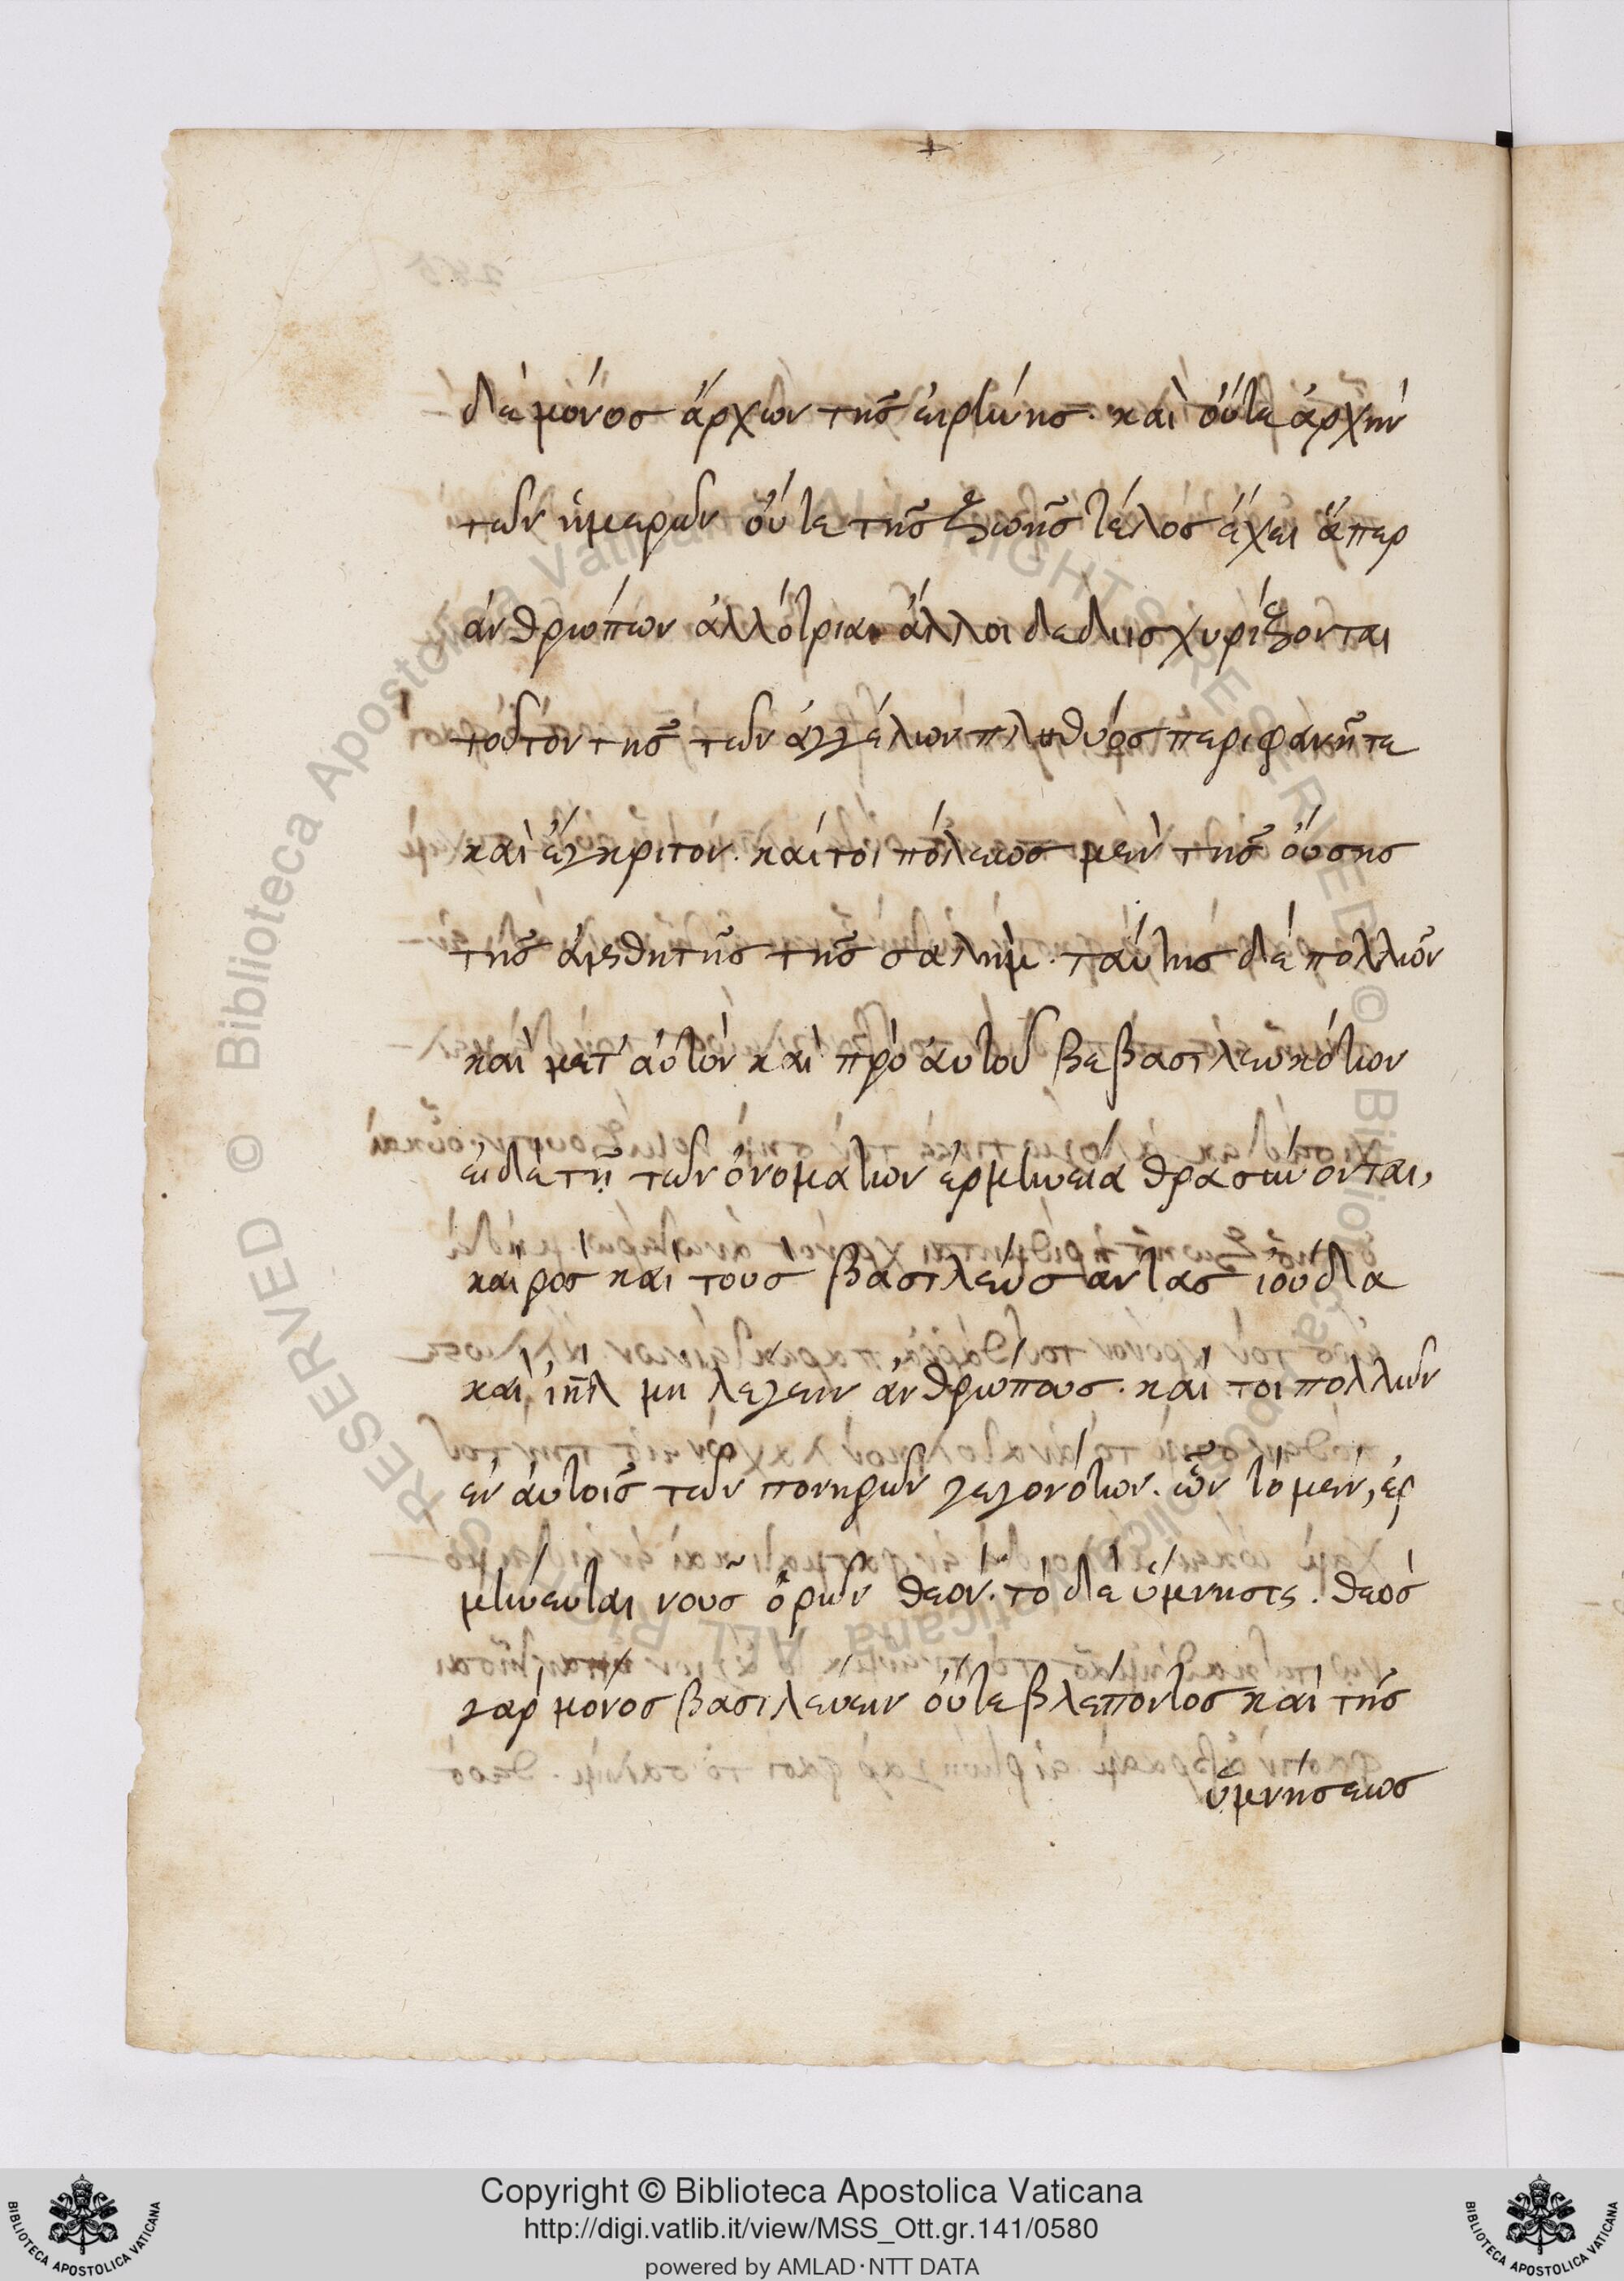 δὲ μόνος ἄρχων τῆς εἰρήνης. καὶ οὔτε ἀρχὴν
τῶν ἡμερῶν οὔτε τῆς ζωῆς τέλος ἔχει ἅπερ
ἀνθρώπων ἀλλότρια. ἄλλοι δε διισχυρίζονται
τοῦτον τῆς τῶν ἀγγέλων πληθύος περιφανῆ τε
καὶ ἔγκριτον. καίτοι πόλεως μὲν τῆς οὔσης
τῆς αἰσθητῆς τῆς σαλὴμ. ταύτης δὲ πολλῶν
καὶ μετ' αὐτὸν καὶ πρὸ αυτοῦ βεβασιλευκότων
εἰ δὲ τῇ τῶν ὀνομάτων ἑρμηνεία θρασύνονται,
καιρος καὶ τοὺς βασιλεύσαντας ἰούδα
καὶ ἰηλ μη λέγειν ἀνθρώπους. καί τοι πολλῶν
ἐν αυτοῖς τῶν πονηρῶν γεγονότων. ὧν τὸ μὲν, ἑρ
μηνεύεται νοῦς ὁρῶν θεον. τὸ δὲ ὕμνησις. θεὸς
γὰρ μόνος βασιλεύειν οὔτε βλέποντος καὶ τῆς
ὑμνήσεως
Copyright © Biblioteca Apostolica Vaticana
http://digi.vatlib.it/view/MSS_Ott.gr.141/0580
powered by AMLAD·NTT DATA